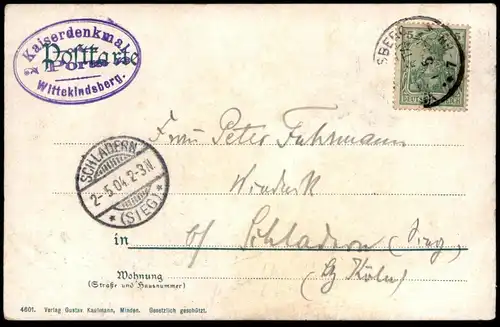 Kaiserdenkmal
Porta
Wittekindsberg.
Postkarte
SCHLADERN
2-5.04.2-3N.
* (SIEG) *
Frau Peter Fuhrmann
Windeck
in b/ Schladern (Sieg)
Bz Köln)
Wohnung
(Straße und Hausnummer)
4601. Verlag Gustav Kaufmann, Minden. Gesetzlich geschützt.